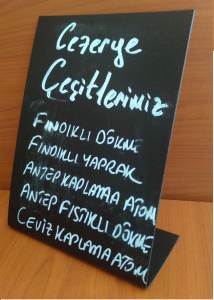 Cezerye
Çeşitlerimiz
FINDIKLI DÖKME
FINDIKLI YAPRAK
ANTEP KAPLAMA ATOM
ANTEP FISTIKLI DÖKME
CEVİZ KAPLAMA ATOM